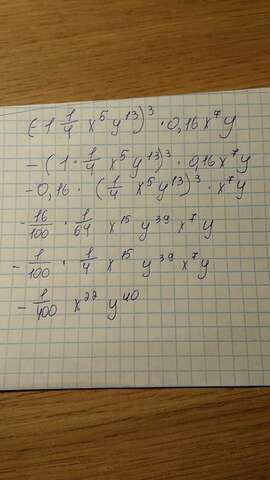 (-1 1/4 x⁵ y¹³)³ · 0,16 x⁷ y
-(1 · 1/4 x⁵ y¹³)³ · 0,16 x⁷ y
-0,16 · (1/4 x⁵ y¹³)³ · x⁷ y
-16/100 · 1/64 x¹⁵ y³⁹ x⁷ y
-1/100 · 1/4 x¹⁵ y³⁹ x⁷ y
-1/400 x²² y⁴⁰